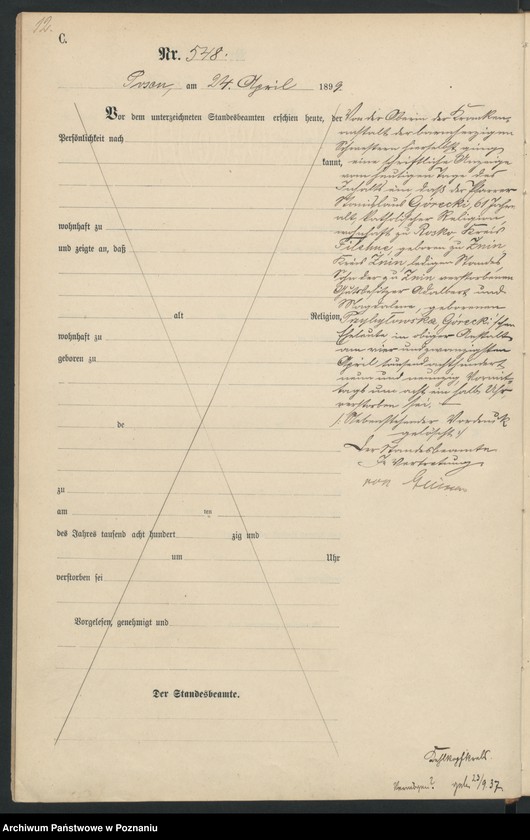 12.
C.
Nr. 548.
Posen, am 24. April 1899.
Vor dem unterzeichneten Standesbeamten erschien heute, der
Persönlichkeit nach
kannt,
wohnhaft zu
und zeigte an, daß
alt Religion,
wohnhaft zu
geboren zu
de
zu
am ten
des Jahres tausend acht hundert zig und
um Uhr
verstorben sei
Vorgelesen, genehmigt und
Der Standesbeamte.
Von der Oberin der Kranken-
anstalt der barmherzigen
Schwestern hierselbst ging
eine schriftliche Anzeige
vom heutigen Tage des
Inhalts ein, daß der Pfarrer
Stanislaus Górecki, 61 Jahre
alt, katholischer Religion,
wohnhaft zu Rosko Kreis
Filehne, geboren zu Znin,
Kreis Znin, ledigen Standes,
Sohn der zu Znin verstorbenen
Gutsbesitzer Adalbert und
Magdalena, geborenen
Przybyłowska, Górecki'schen
Eheleute, in obiger Anstalt
am vier und zwanzigsten
April tausend achthundert
neun und neunzig, Vormit-
tags um acht ein halb Uhr
verstorben sei.
Nebenstehender Vordruck
gelöscht.
Der Standesbeamte
In Vertretung
von
Kehlkopfkrebs
23/9.37
Archiwum Państwowe w Poznaniu